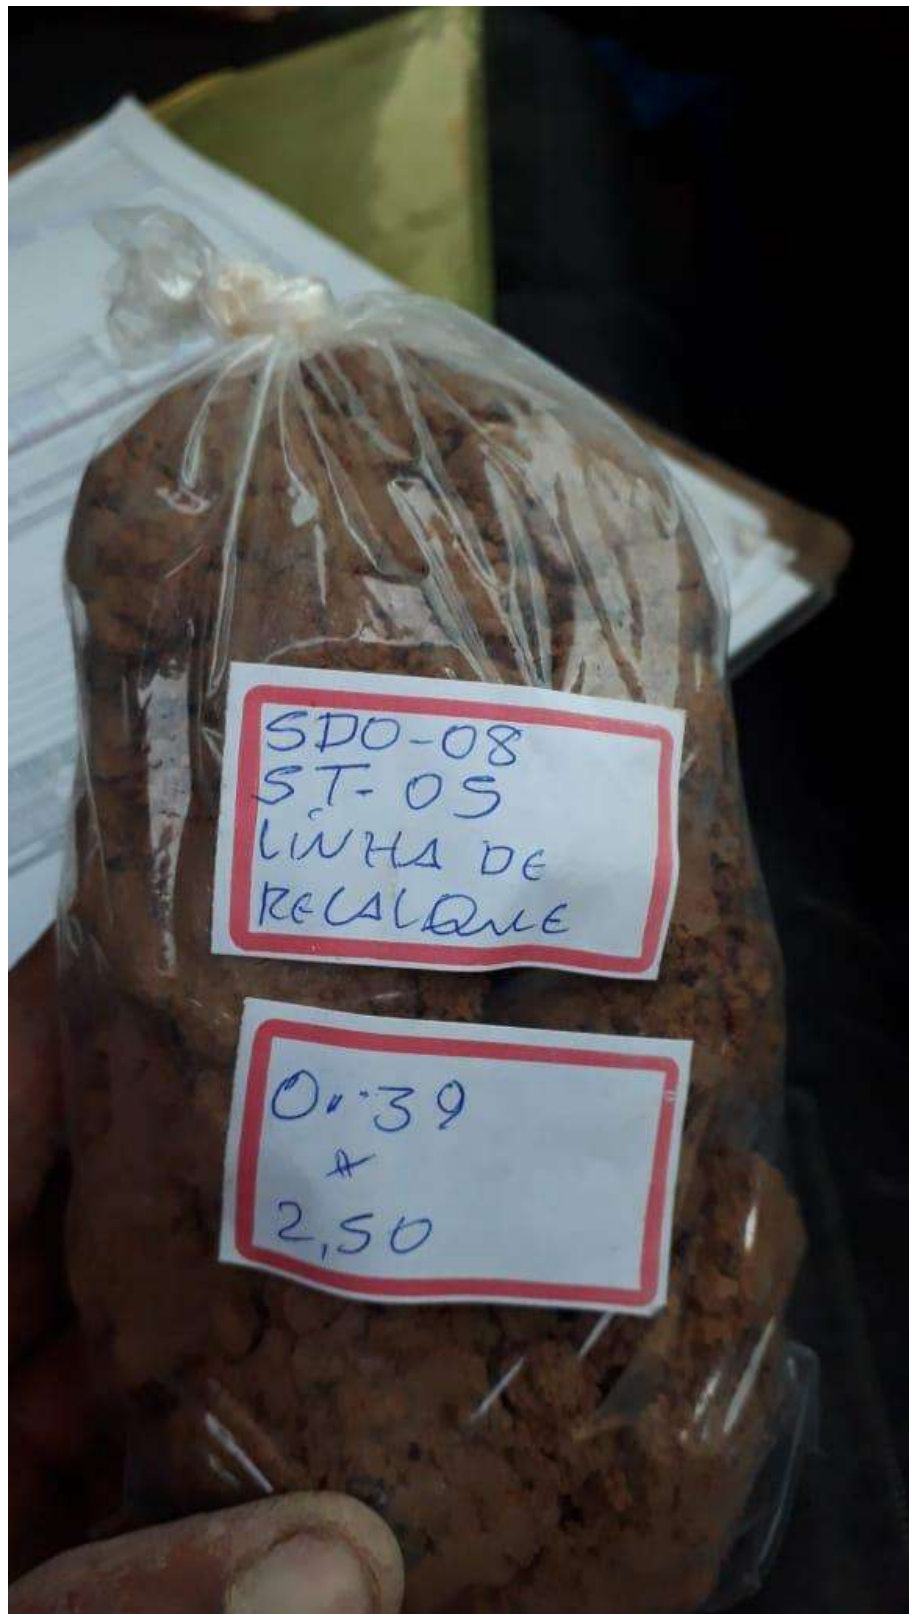 SDO-08
ST-05
LINHA DE
RECALQUE
0,39
A
2,50